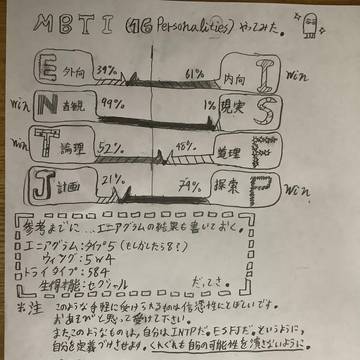 MBTI (16 Personalities) やってみた。
E 外向 39% 61% 内向 I win
win N 直観 99% 1% 現実 S
win T 論理 52% 48% 道理 F
J 計画 21% 79% 探索 P win
参考までに…エニアグラムの結果も書いておく。
エニアグラム:タイプ5(もしかしたら8?)
ウィング:5w4
トライタイプ:584
生得本能:セクシャル だってさ。
注 このような手軽に受けられるものは信憑性にとぼしいです。
おあそびと思って受けて下さい。
またこのようなものは,自分はINTPだ。ESFJだ。というように,
自分を定義づけさせます。くれぐれも自分の可能性を潰さないように。